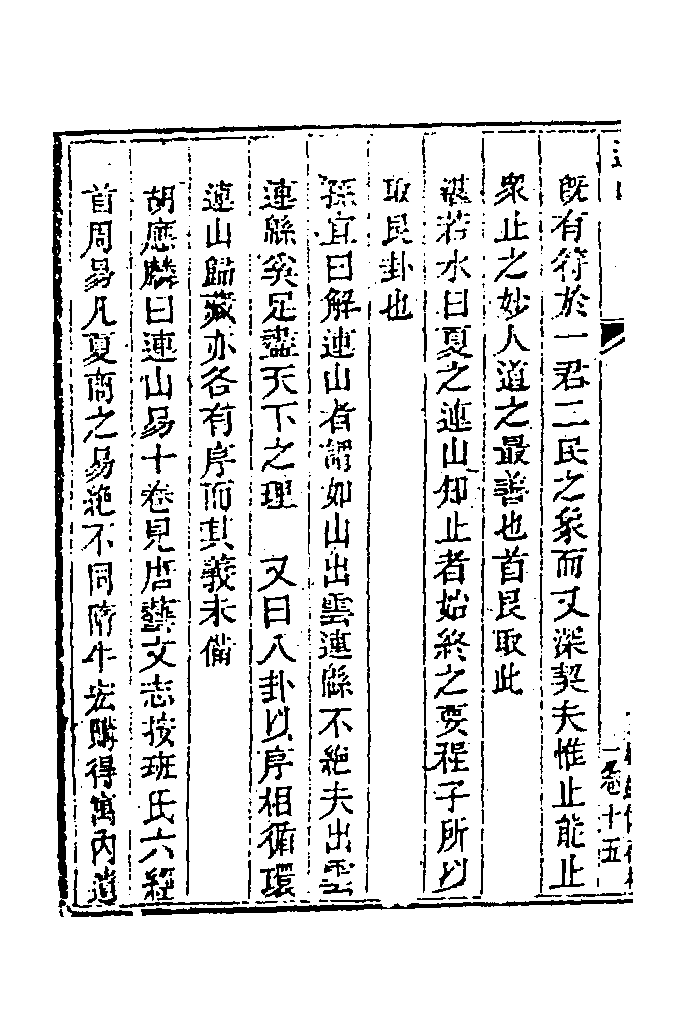 旣有符於一君二民之象而又深契夫惟止能止
衆止之妙人道之最善也首艮取此
湛若水曰夏之連山知止者始終之要程子所以
取艮卦也
孫宜曰解連山者謂如山出雲連緜不絶夫出雲
連緜奚足盡天下之理　又曰八卦以序相循環
連山歸藏亦各有序而其義未備
胡應麟曰連山易十卷見唐藝文志按班氏六經
首周易凡夏商之易絶不同隋牛宏購得寓內遺
卷十五